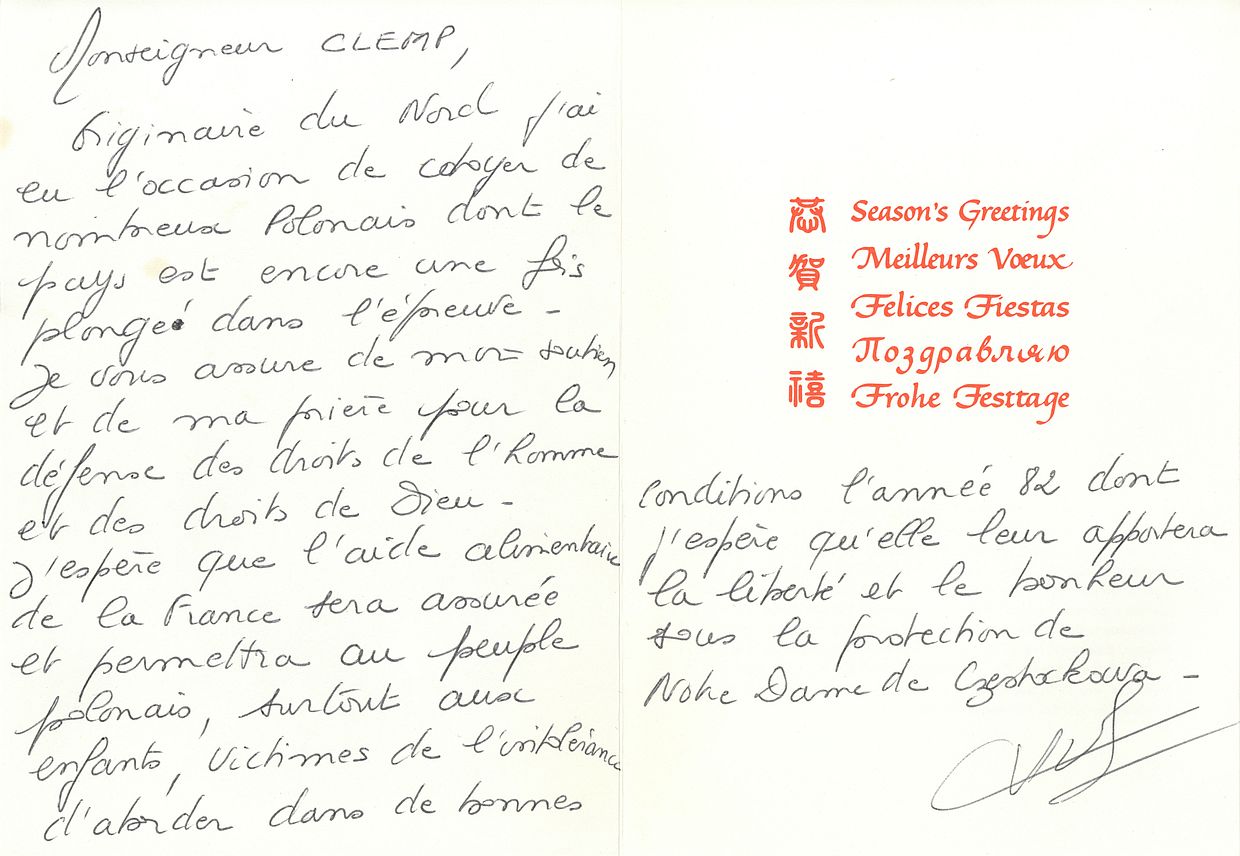 Monseigneur CLEMP,
Originaire du Nord j'ai
eu l'occasion de cotoyer de
nombreux Polonais dont le
pays est encore une fois
plongé dans l'épreuve -
Je vous assure de mon soutien
et de ma prière pour la
défense des droits de l'homme
et des droits de Dieu -
J'espère que l'aide alimentaire
de la France sera assurée
et permettra au peuple
polonais, surtout aux
enfants, victimes de l'intolérance
d'aborder dans de bonnes
恭賀新禧
Season's Greetings
Meilleurs Vœux
Felices Fiestas
Поздравляю
Frohe Festtage
conditions l'année 82 dont
j'espère qu'elle leur apportera
la liberté et le bonheur
sous la protection de
Notre Dame de Czestockowa -